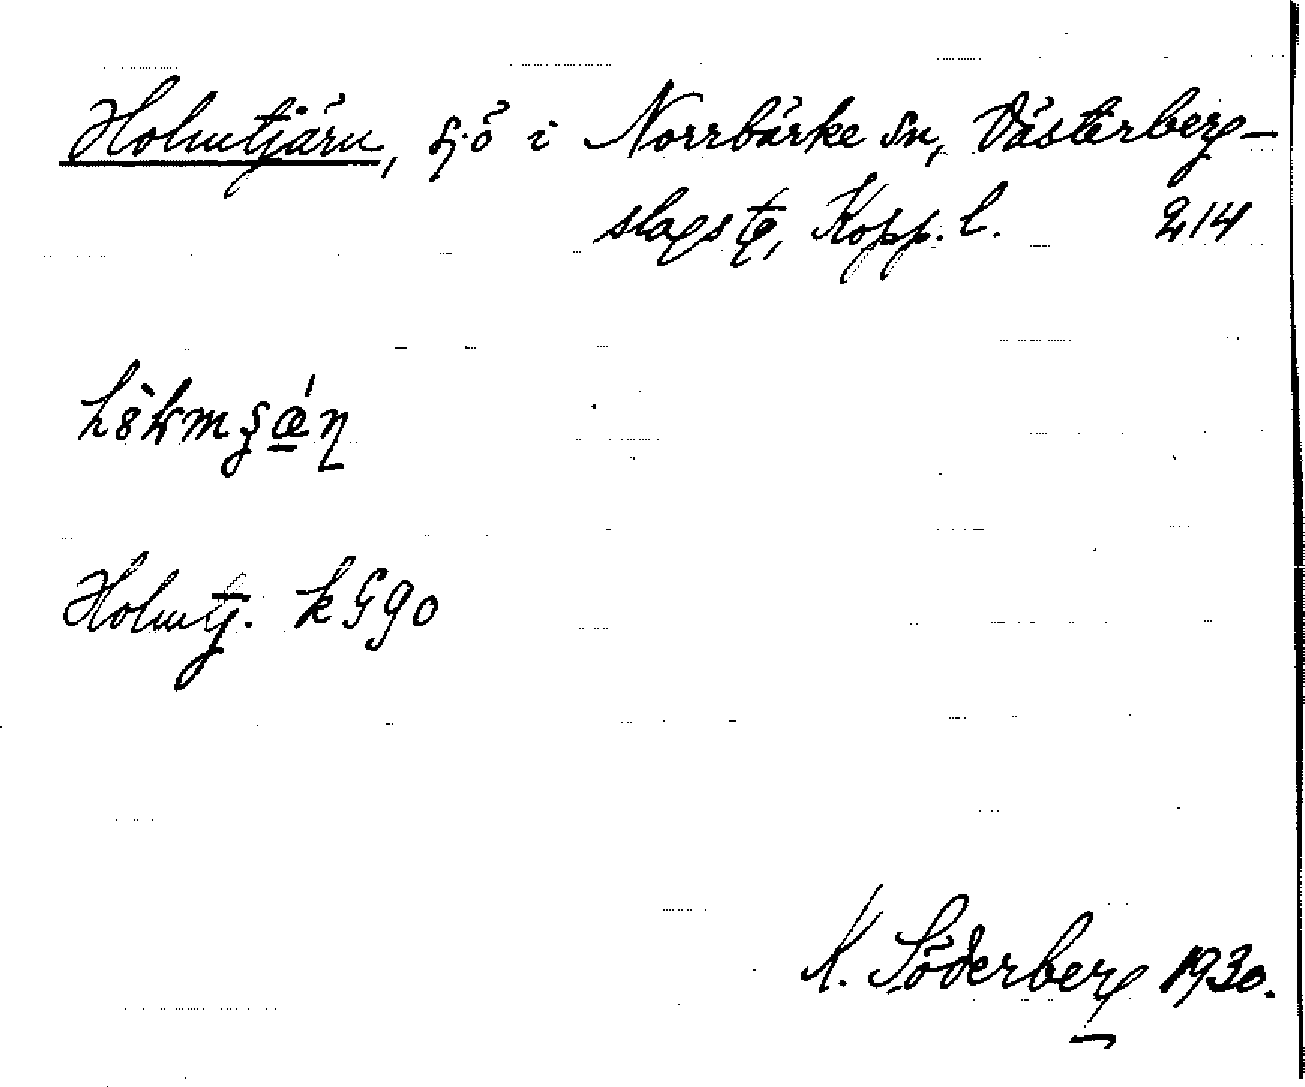 Holmtjärn, sjö i Norrbärke sn, Västerberg-
slags tg, Kopp. l. 214
Holmtj. k GG 90
K. Söderberg 1930.